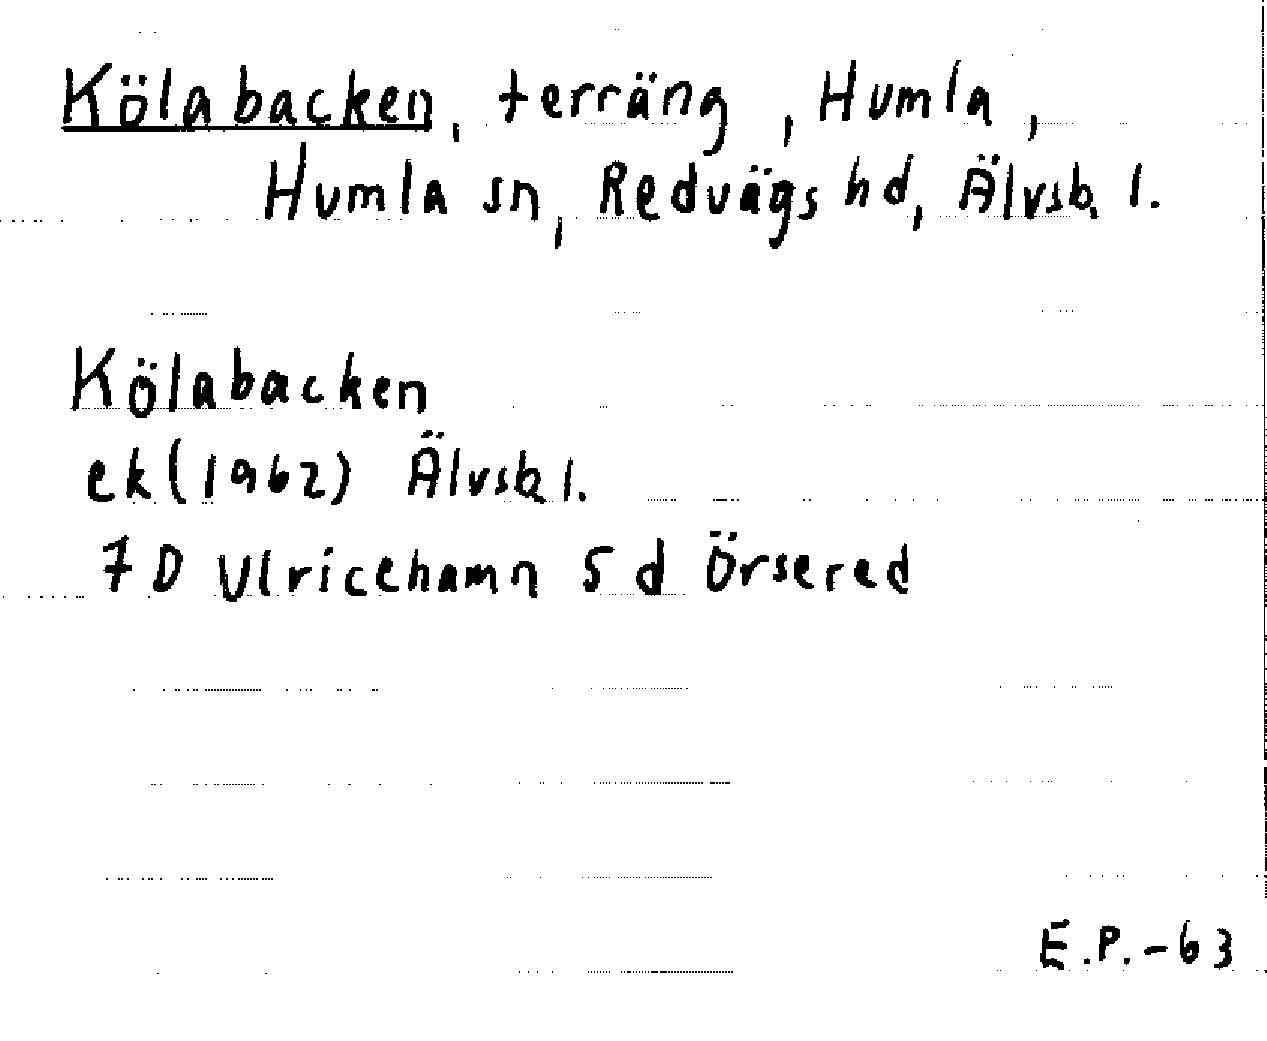 Kölabacken, terräng, Humla,
Humla sn, Redvägs hd, Älvsb. l.
Kölabacken
ek (1962) Älvsb. l.
7 D Ulricehamn 5 d Örsered
E.P. - 63